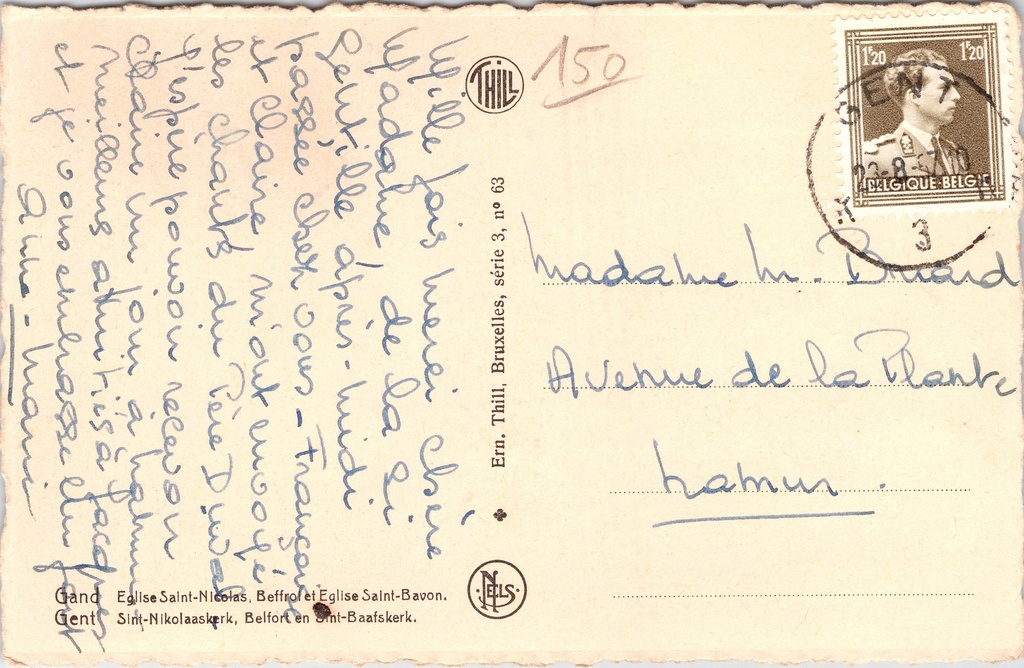 Mille fois merci chère
Madame, de la si
gentille après-midi
passée chez vous - Françoise
et Claire m'ont envoyé
les chants du Père Duval
J'espère pouvoir recevoir
un jour à
meilleures amitiés à Jacques
et je vous embrasse
Anne-Marie
THILL
150
1F20 1F20
BELGIQUE-BELGIE
GENT
23-8-57
3
Ern. Thill, Bruxelles, série 3, nº 63
NELS
Madame M.
Avenue de la Plante
Namur.
Gand Eglise Saint-Nicolas, Beffroi et Eglise Saint-Bavon.
Gent Sint-Nikolaaskerk, Belfort en Sint-Baafskerk.